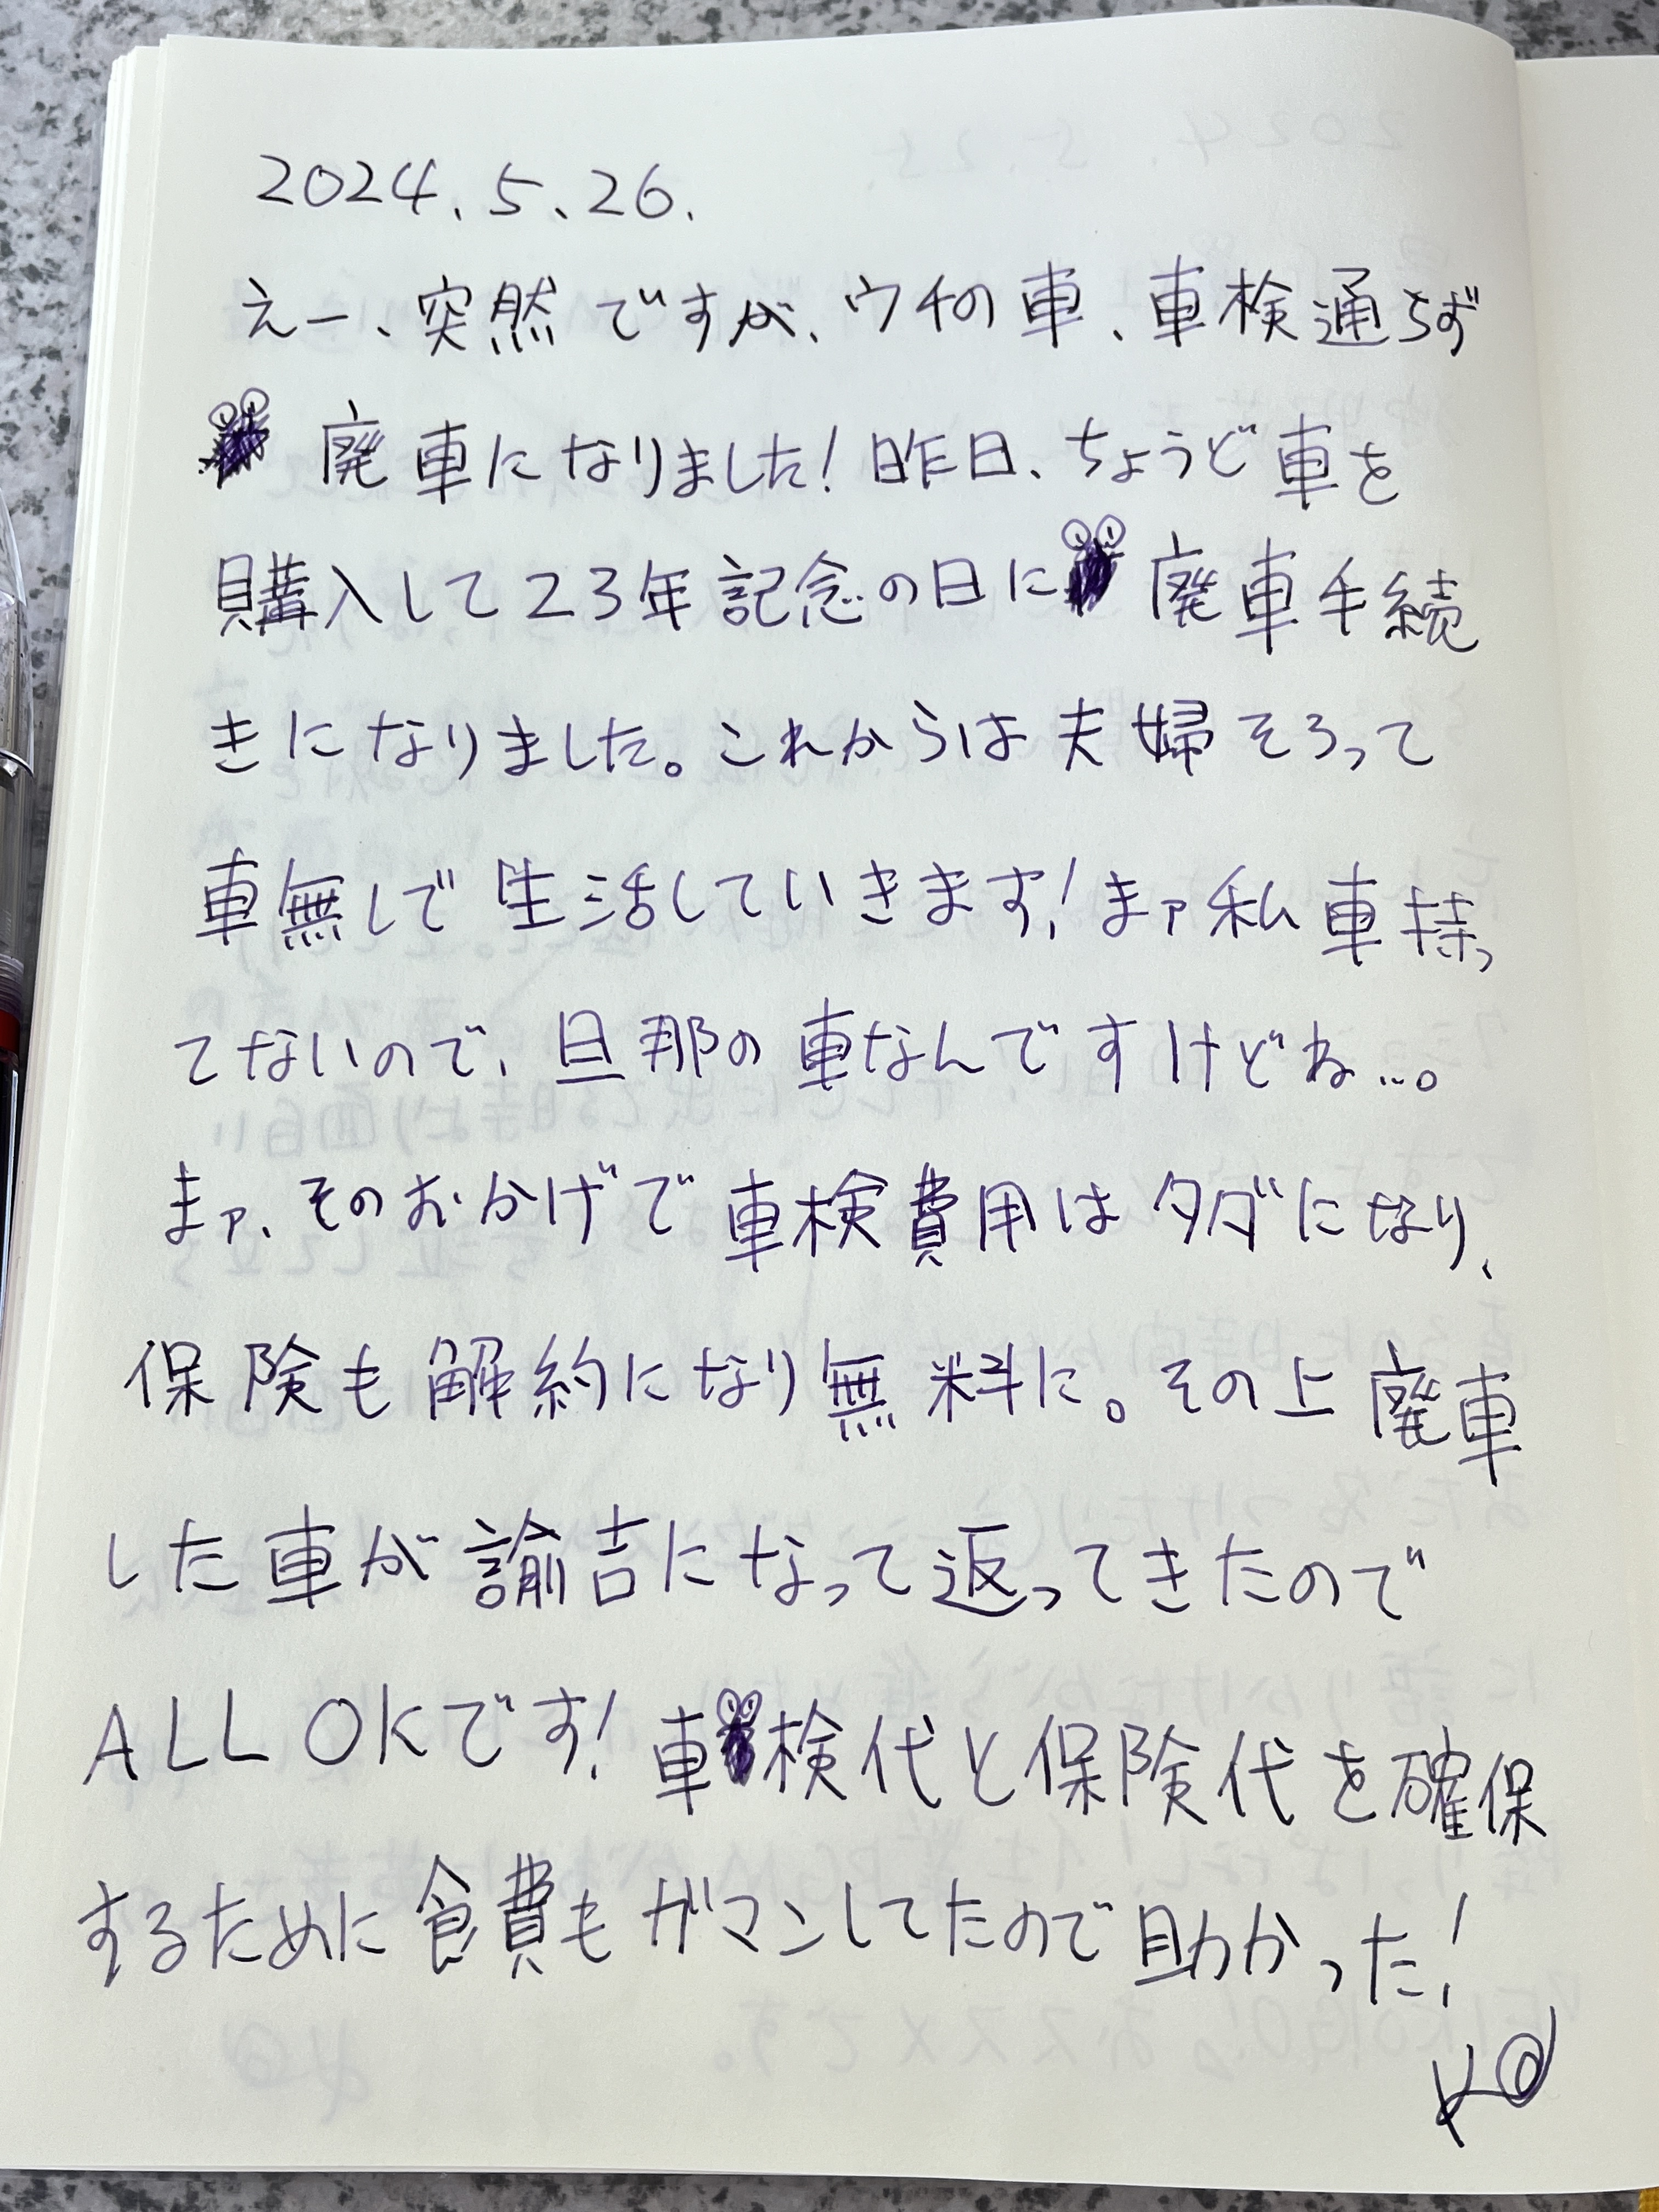 2024.5.26.
えー、突然ですが、ウチの車、車検通らず
廃車になりました!昨日、ちょうど車を
購入して23年記念の日に廃車手続
きになりました。これからは夫婦そろって
車無しで生活していきます!まァ私車持っ
てないので、旦那の車なんですけどね…。
まァ、そのおかげで車検費用はタダになり、
保険も解約になり無料に。その上廃車
した車が諭吉になって返ってきたので
ALL OKです!車検代と保険代を確保
するために食費もガマンしてたので助かった!